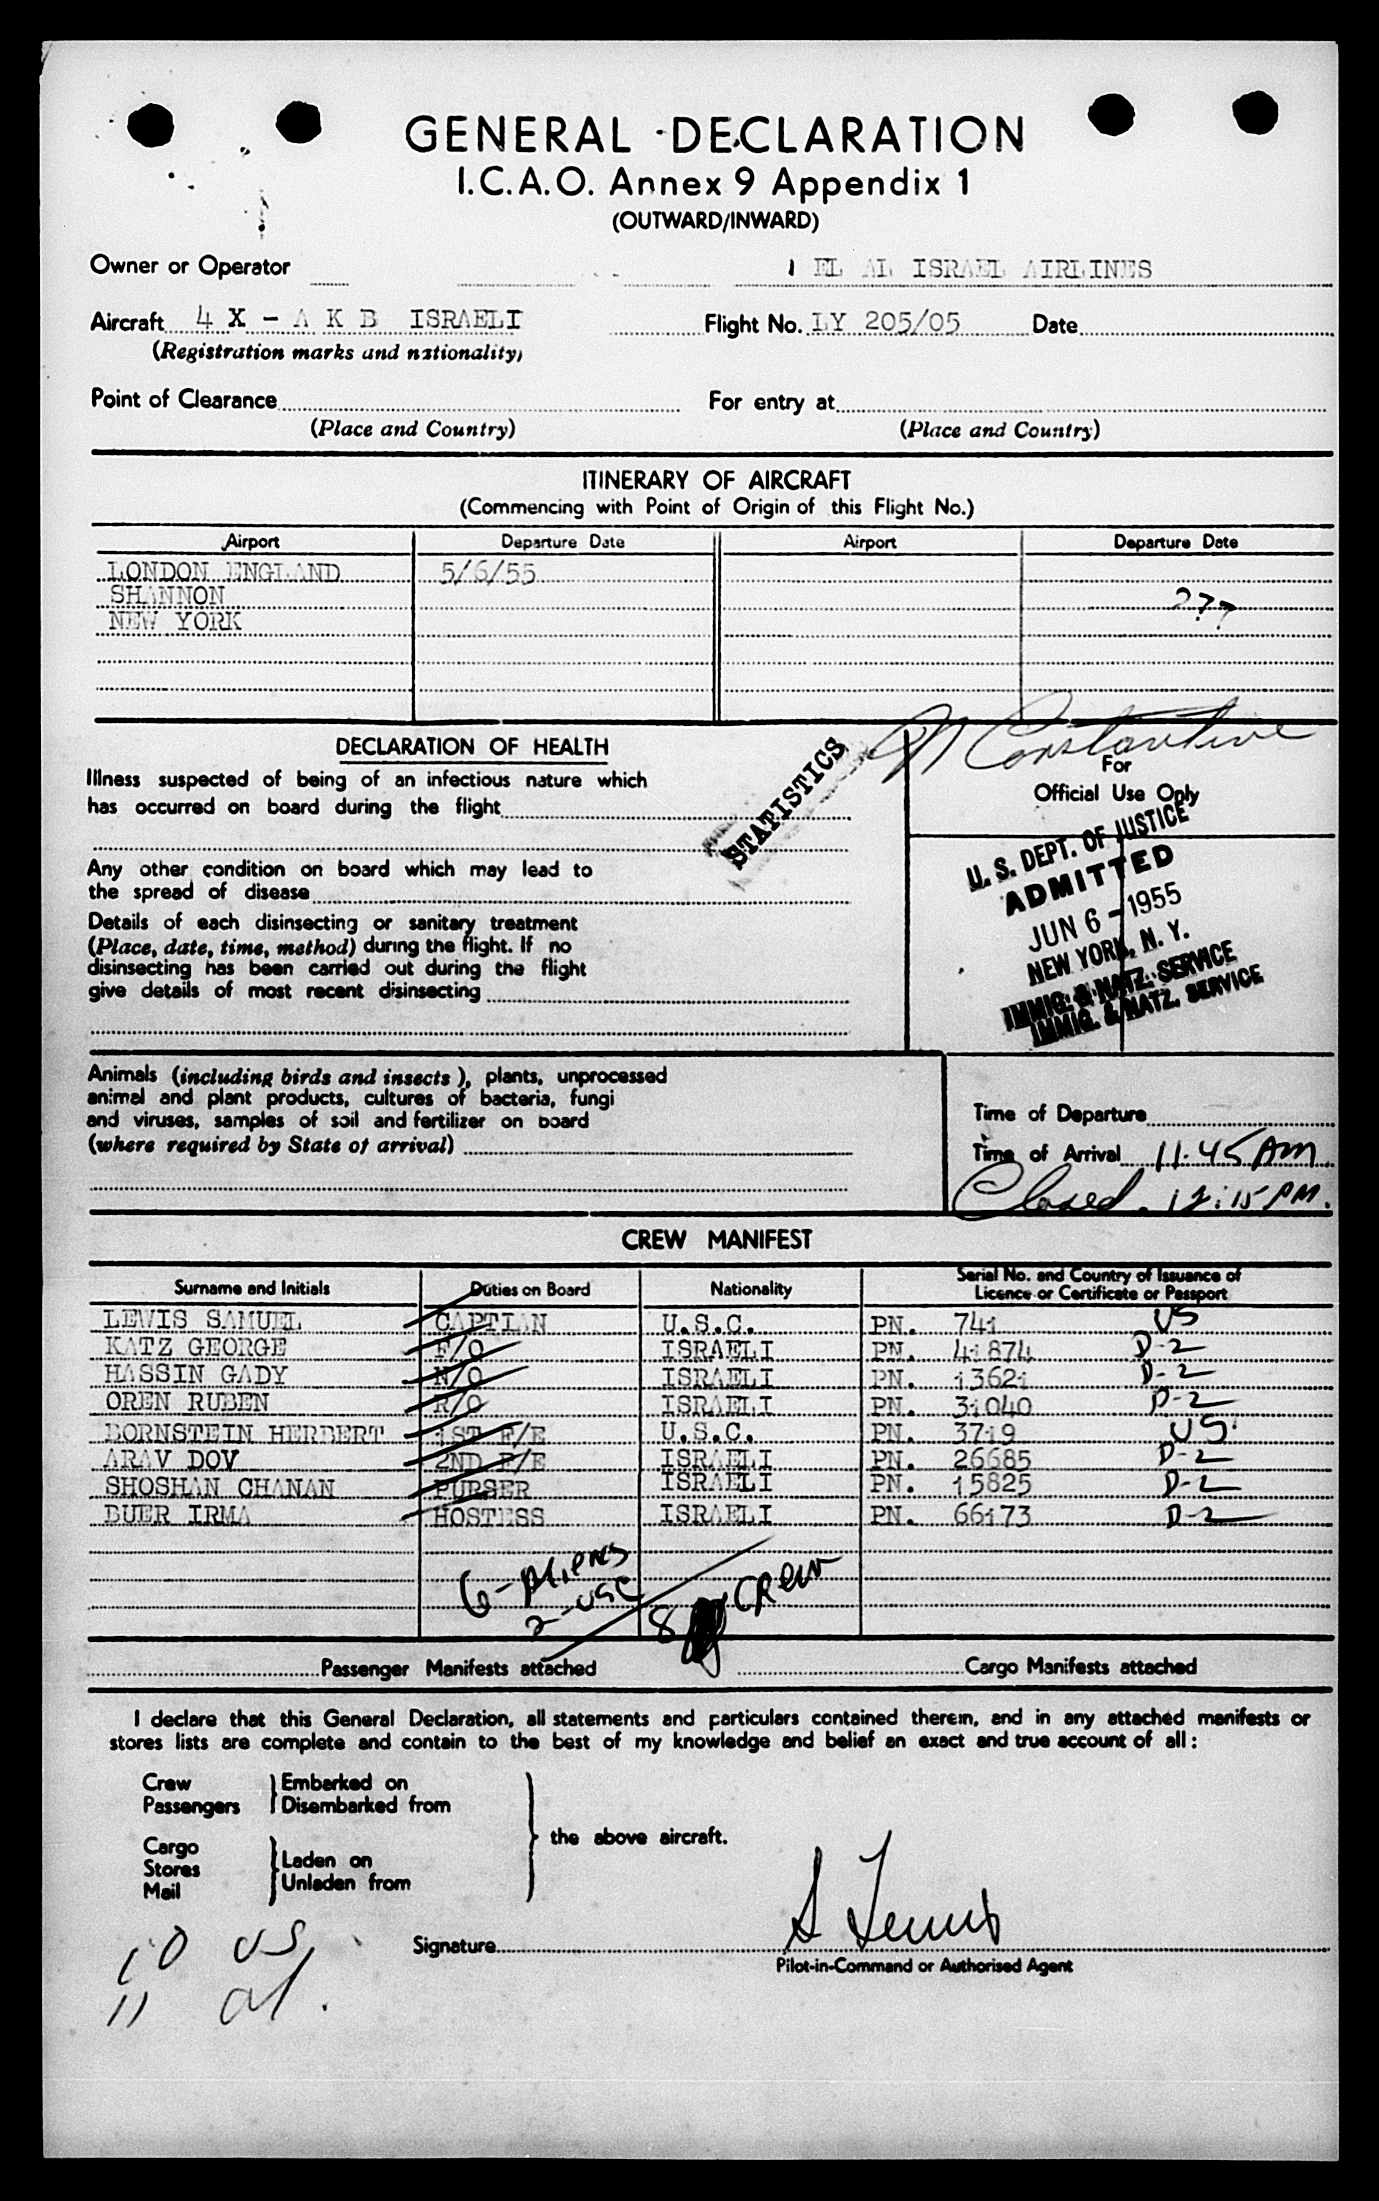 GENERAL DECLARATION
I.C.A.O. Annex 9 Appendix 1
(OUTWARD/INWARD)
Owner or Operator EL AL ISRAEL AIRLINES
Aircraft 4 X - A K B ISRAELI Flight No. LY 205/05 Date
(Registration marks and nationality)
Point of Clearance For entry at
(Place and Country) (Place and Country)
ITINERARY OF AIRCRAFT
(Commencing with Point of Origin of this Flight No.)
Airport Departure Date Airport Departure Date
LONDON ENGLAND 5/6/55
SHANNON ???
NEW YORK
N Constantine
DECLARATION OF HEALTH
Illness suspected of being of an infectious nature which
has occurred on board during the flight
STATISTICS
For
Official Use Only
Any other condition on board which may lead to
the spread of disease
Details of each disinsecting or sanitary treatment
(Place, date, time, method) during the flight. If no
disinsecting has been carried out during the flight
give details of most recent disinsecting
U. S. DEPT. OF JUSTICE
ADMITTED
JUN 6 - 1955
NEW YORK, N. Y.
IMMIG. & NATZ. SERVICE
IMMIG. & NATZ. SERVICE
Animals (including birds and insects), plants, unprocessed
animal and plant products, cultures of bacteria, fungi
and viruses, samples of soil and fertilizer on board
(where required by State of arrival)
Time of Departure
Time of Arrival 11.45 AM
Closed. 12:15 PM.
CREW MANIFEST
Surname and Initials Duties on Board Nationality Serial No. and Country of Issuance of
Licence or Certificate or Passport
LEWIS SAMUEL CAPTIAN U.S.C. PN. 741 US
KATZ GEORGE F/O ISRAELI PN. 41874 D-2
HASSIN GADY N/O ISRAELI PN. 13621 D-2
OREN RUBEN R/O ISRAELI PN. 31040 D-2
BORNSTEIN HERBERT 1ST F/E U.S.C. PN. 3719 US
ARAV DOV 2ND F/E ISRAELI PN. 26685 D-2
SHOSHAN CHANAN PURSER ISRAELI PN. 15825 D-2
BUER IRMA HOSTESS ISRAELI PN. 66173 D-2
6-Aliens
2-USC
8 Crew
Passenger Manifests attached Cargo Manifests attached
I declare that this General Declaration, all statements and particulars contained therein, and in any attached manifests or
stores lists are complete and contain to the best of my knowledge and belief an exact and true account of all:
Crew Embarked on
Passengers Disembarked from
the above aircraft.
Cargo
Stores Laden on
Mail Unladen from
10 US
11 al.
Signature S Lewis
Pilot-in-Command or Authorised Agent